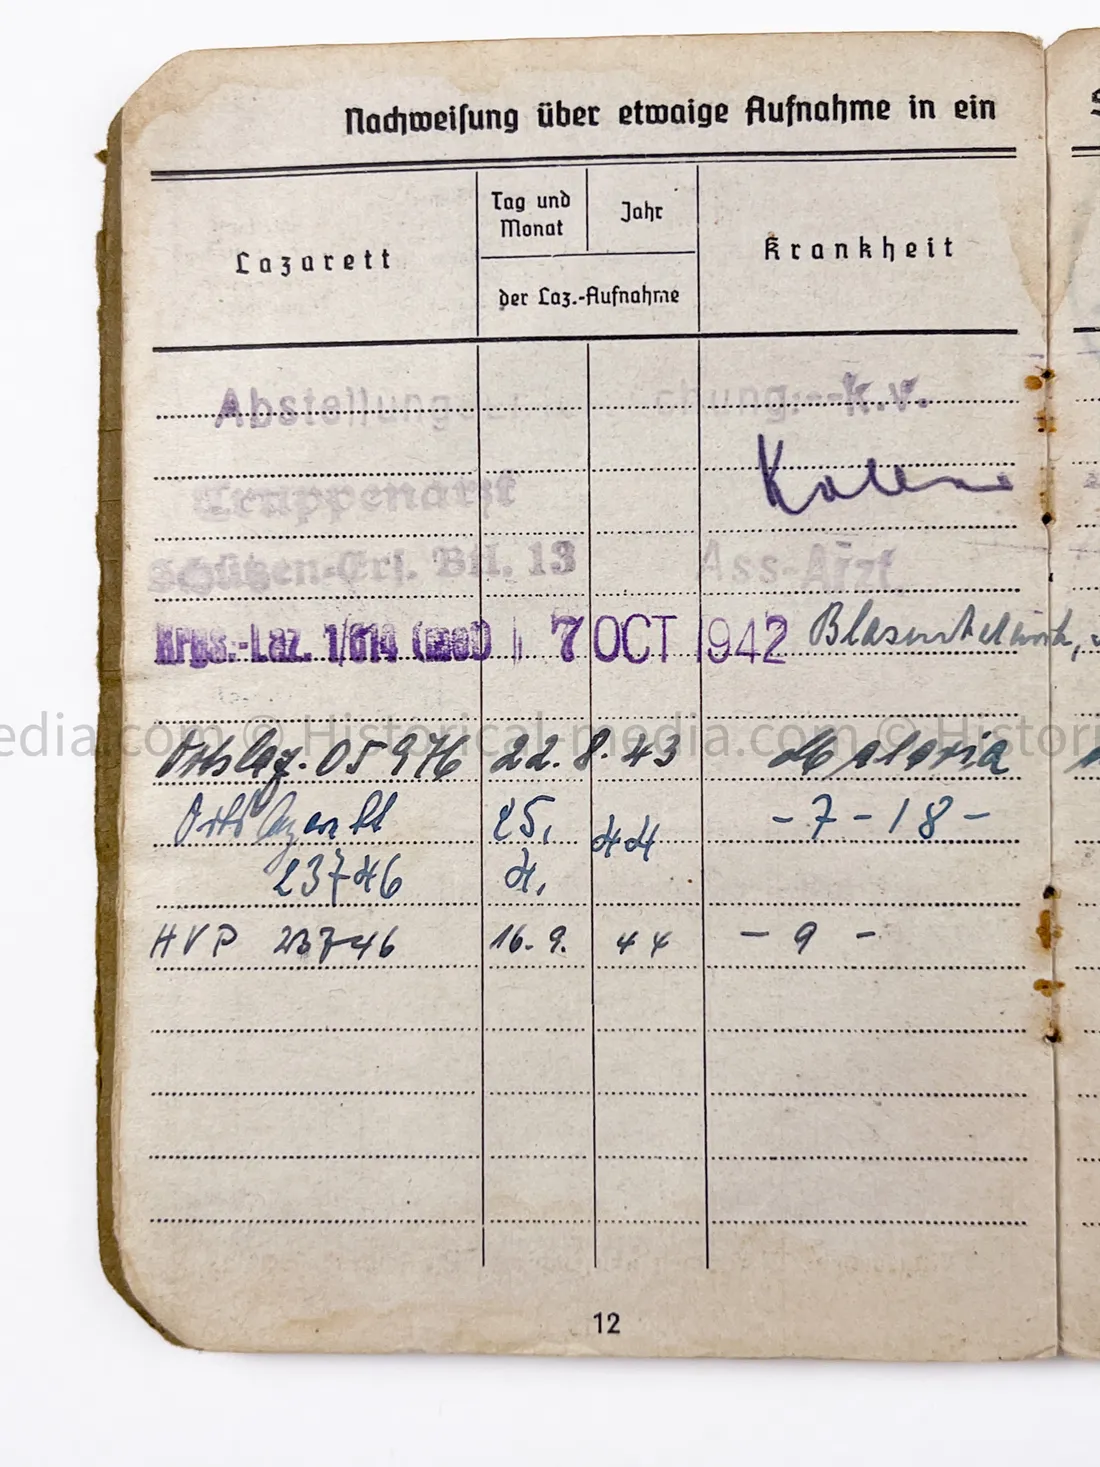 Nachweisung über etwaige Aufnahme in ein
Lazarett
Tag und Monat
Jahr
der Laz.-Aufnahme
Krankheit
Abstellungs chung:--k.v.
Truppenarzt
Schützen-Ers. Btl. 13 Ass-Arzt
Krgs.-Laz. 1/614 (mot) 7 OCT 1942
edia.com © Historical-media.com © Histor
Ortslaz. 05976 22. 8. 43 Malaria
Ortslazarett 25. 44 - 7 - 18 -
23746 4.
HVP 23746 16. 9. 44 - 9 -
12